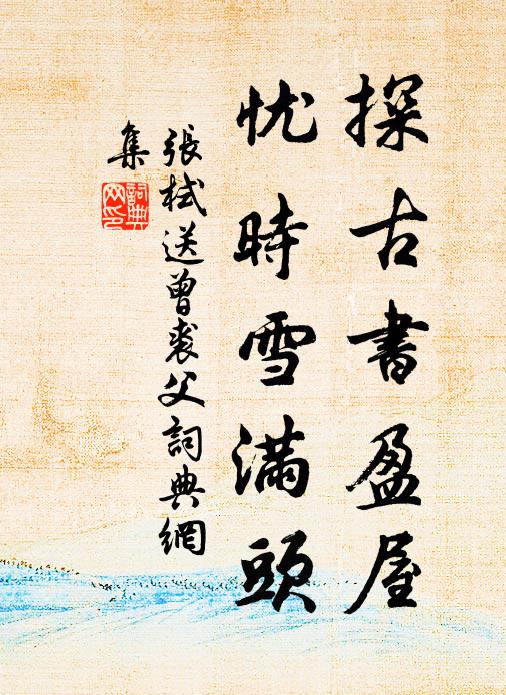 探古書盈屋
忧時雪滿頭
張栻送曾裘父詞典網
集
詞典
网印